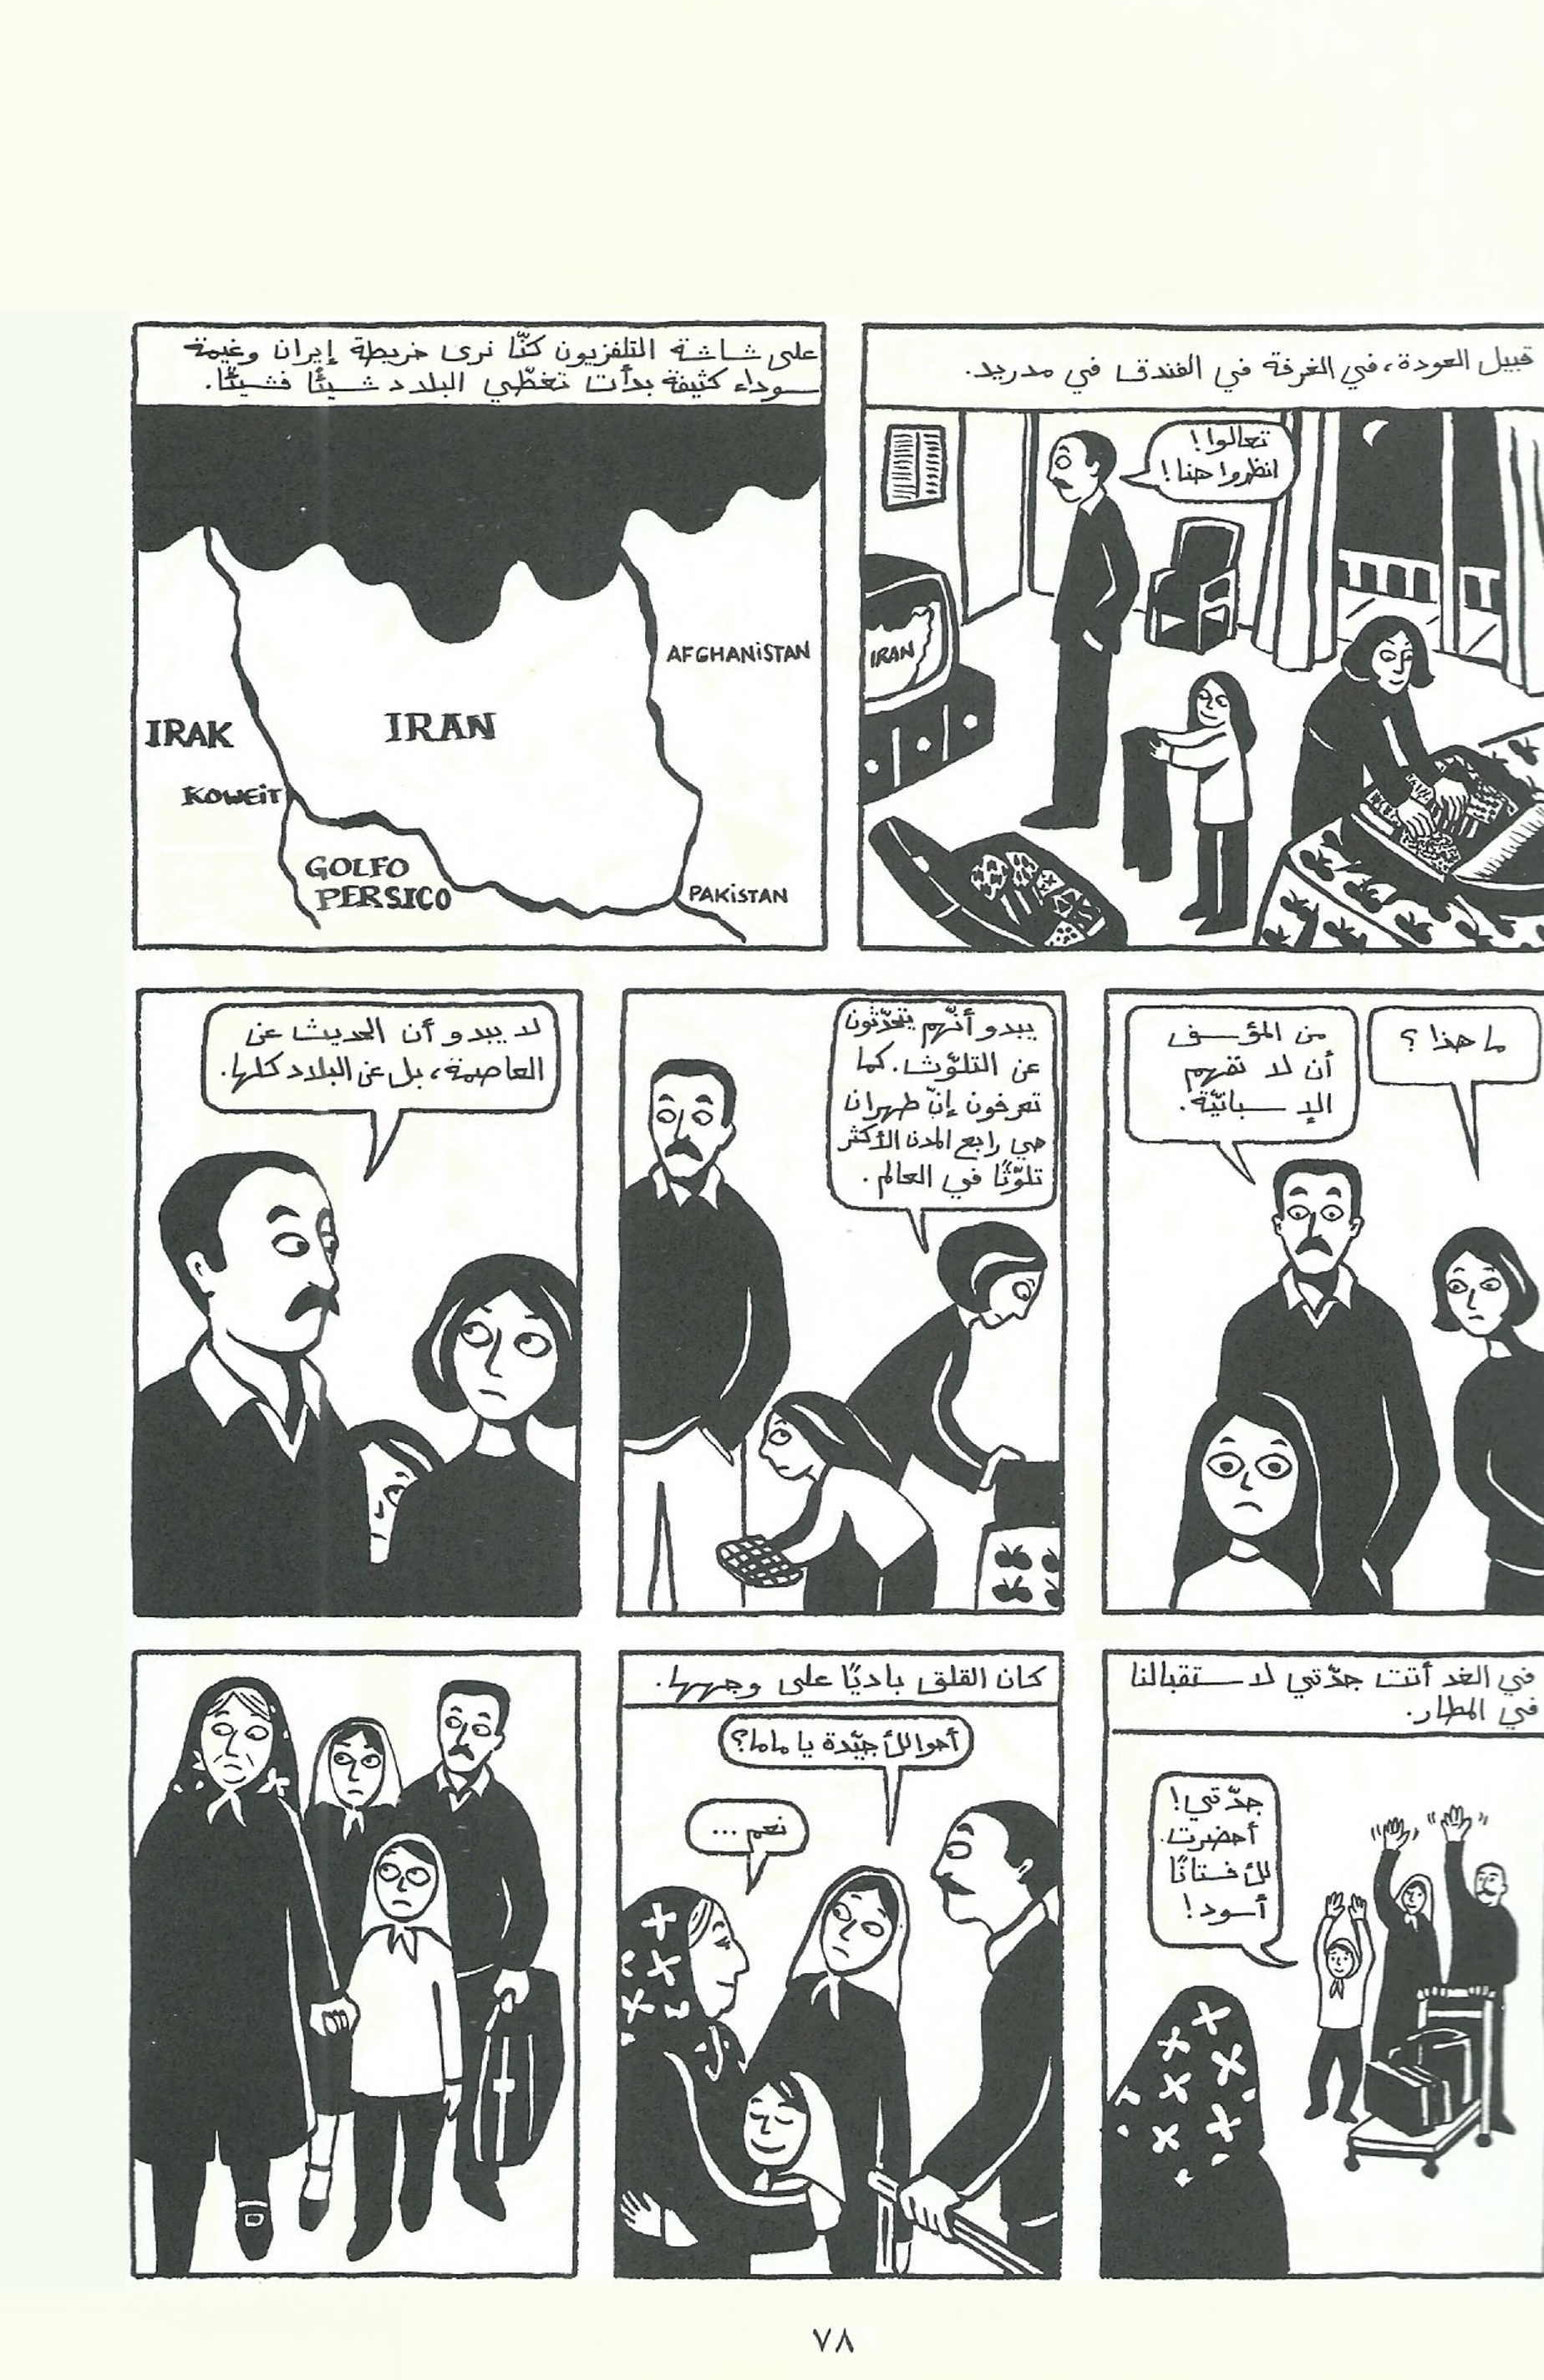 قبيل العودة، في الغرفة في الفندق في مدريد.
تعالوا!
انظروا هنا!
IRAN
على شاشة التلفزيون كنّا نرى خريطة إيران وغيمة
سوداء كثيفة بدأت تغطّي البلاد شيئًا فشيئًا.
AFGHANiSTAN
IRAK
IRAN
KOWEiT
GOLFO
PERSICO
PAKiSTAN
ما هذا؟
من المؤسف
أن لا نفهم
الإسبانيّة.
يبدو أنّهم يتحدّثون
عن التلوّث. كما
تعرفون إنّ طهران
هي رابع المدن الأكثر
تلوّثًا في العالم.
لا يبدو أن الحديث عن
العاصمة، بل عن البلاد كلها.
في الغد أتت جدّتي لاستقبالنا
في المطار.
جدّتي!
أحضرت
لكِ فستانًا
أسود!
كان القلق باديًا على وجهها.
أحوالكِ جيّدة يا ماما؟
نعم...
٧٨